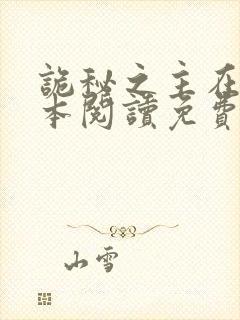 詭秘之主在
本閱讀免費
山雪